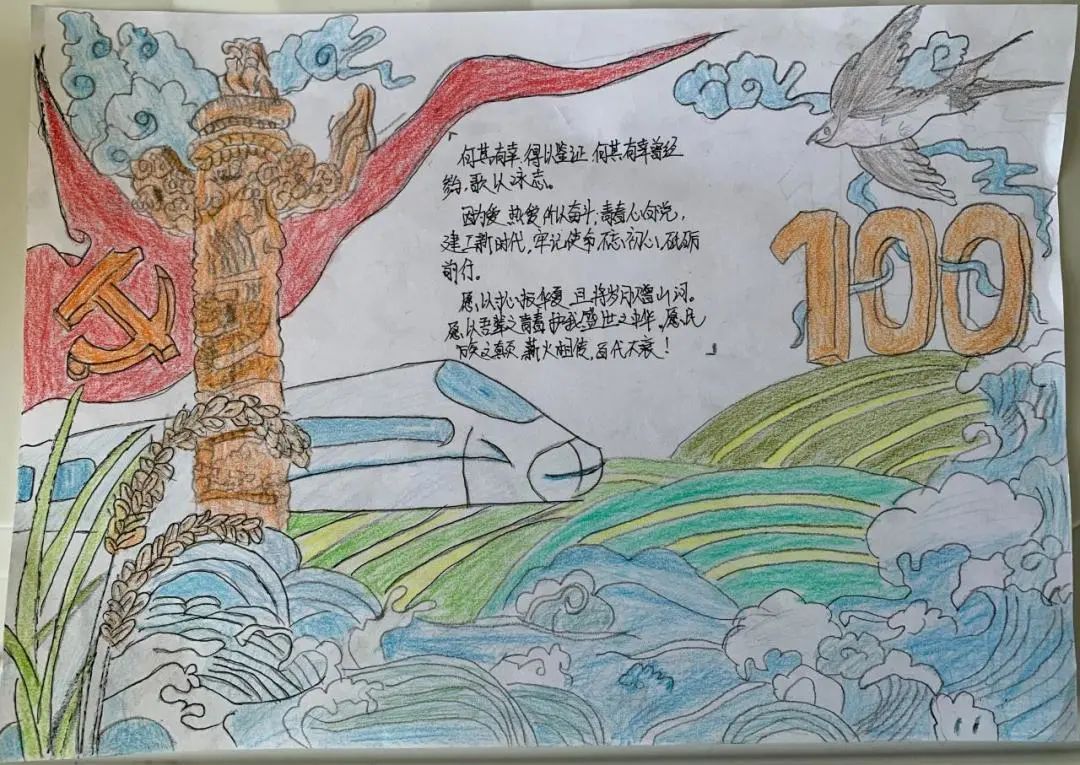 「何其有幸,得以鉴证 何其有幸曾经
歌以泳志。
因为爱,热爱所以奋斗;青春心向党,
建工新时代,牢记使命不忘初心,砥砺
前行。
愿以寸心报华夏,且将岁月赠山河。
愿以吾辈之青春护我盛世之中华。愿民
族之颠,薪火相传,百代不衰!」
100